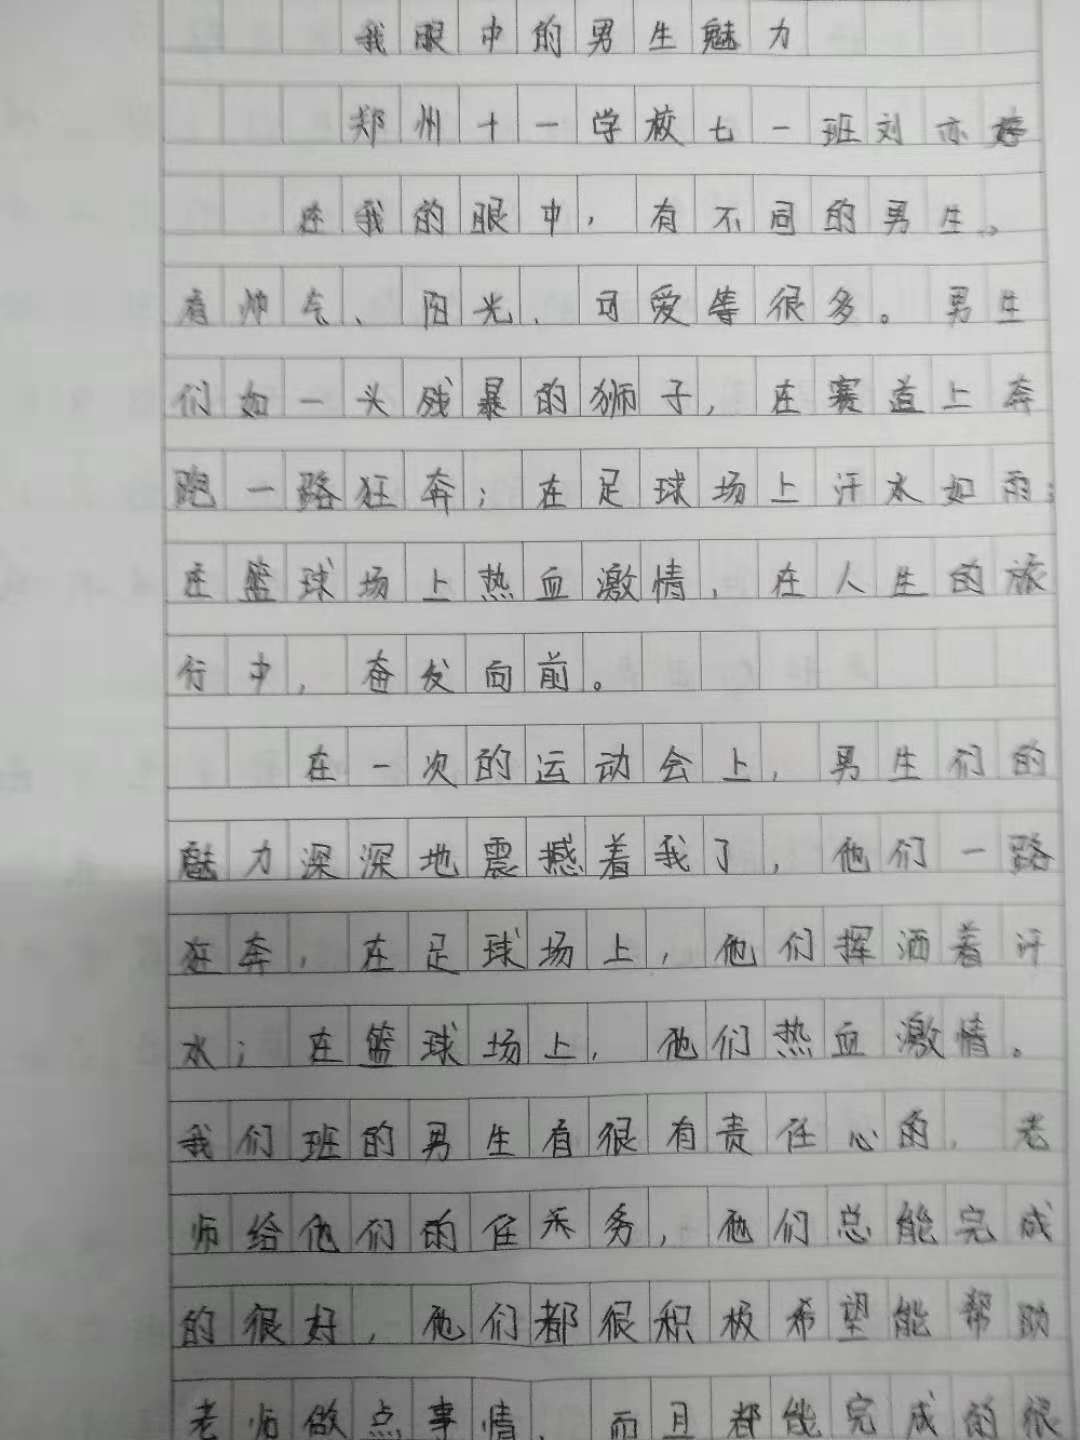 我眼中的男生魅力
郑州十一学校七一班刘亦
在我的眼中，有不同的男生。
有帅气、阳光、可爱等很多。男生
们如一头残暴的狮子，在赛道上奔
跑一路狂奔；在足球场上汗水如雨；
在篮球场上热血激情，在人生的旅
行中，奋发向前。
在一次的运动会上，男生们的
魅力深深地震撼着我了，他们一路
狂奔，在足球场上，他们挥洒着汗
水；在篮球场上，他们热血激情。
我们班的男生有很有责任心的，老
师给他们的任务，他们总能完成
的很好，他们都很积极希望能帮助
老师做点事情，而且都能完成的很